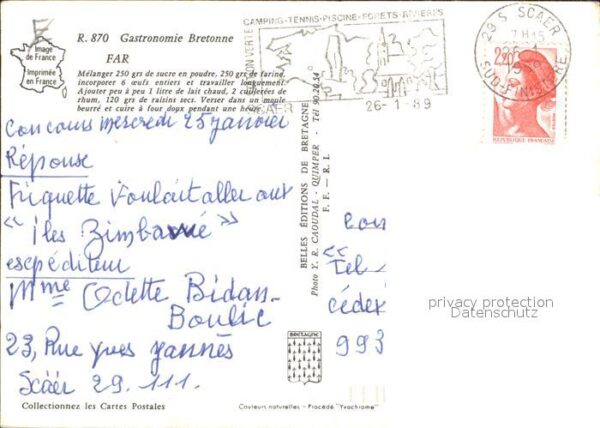 R. 870 Gastronomie Bretonne
FAR
Mélanger 250 grs de sucre en poudre, 250 grs de farine,
incorporer 6 œufs entiers et travailler longuement.
Ajouter peu à peu 1 litre de lait chaud, 2 cuillerées de
rhum, 120 grs de raisins secs. Verser dans un moule
beurré et cuire à four doux pendant une heure.
Image
de France
Imprimée
en France
CAMPING-TENNIS-PISCINE-FORETS-RIVIERES
REGION VERTE
SCAER
26-1-89
29 S SCAER
7H15
26-1
SUD-FINISTERE
2,20
REPUBLIQUE FRANÇAISE
Concours mercredi 25 janvier
Réponse
Friquette voulait aller aux
"îles Zimbawé"
escpéditeur
Mme Odette Bidan-
Boulic
23, Rue yves jannès
Scäer 29.111.
BELLES ÉDITIONS DE BRETAGNE
Photo Y. R. CAOUDAL - QUIMPER - Tél 90.20.54
F. F. - R. I.
BRETAGNE
Con
« Tel
cédex
993
privacy protection
Datenschutz
Collectionnez les Cartes Postales
Couleurs naturelles - Procédé "Yvachrome"